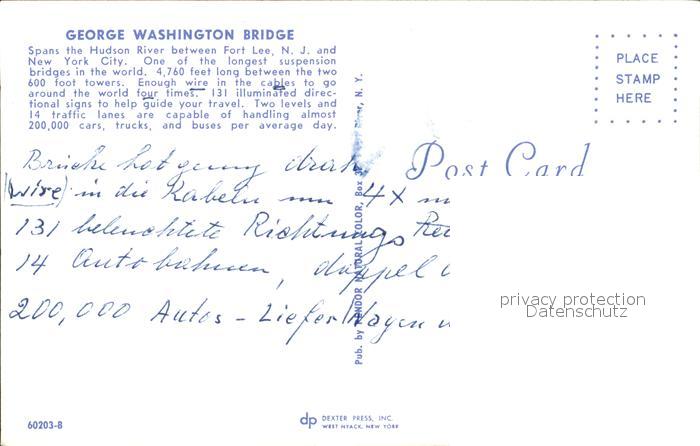 GEORGE WASHINGTON BRIDGE
Spans the Hudson River between Fort Lee, N. J. and
New York City. One of the longest suspension
bridges in the world. 4,760 feet long between the two
600 foot towers. Enough wire in the cables to go
around the world four times. 131 illuminated direc-
tional signs to help guide your travel. Two levels and
14 traffic lanes are capable of handling almost
200,000 cars, trucks, and buses per average day.
PLACE
STAMP
HERE
Post Card
Brücke hat genug draht
(wire) in die Kabeln um 4x
131 beleuchtete Richtungs
14 Autobahnen, doppel
200,000 Autos - Liefer Wagen
Pub. by NATURAL COLOR, Box N. Y.
privacy protection
Datenschutz
60203-B
dp DEXTER PRESS, INC.
WEST NYACK, NEW YORK